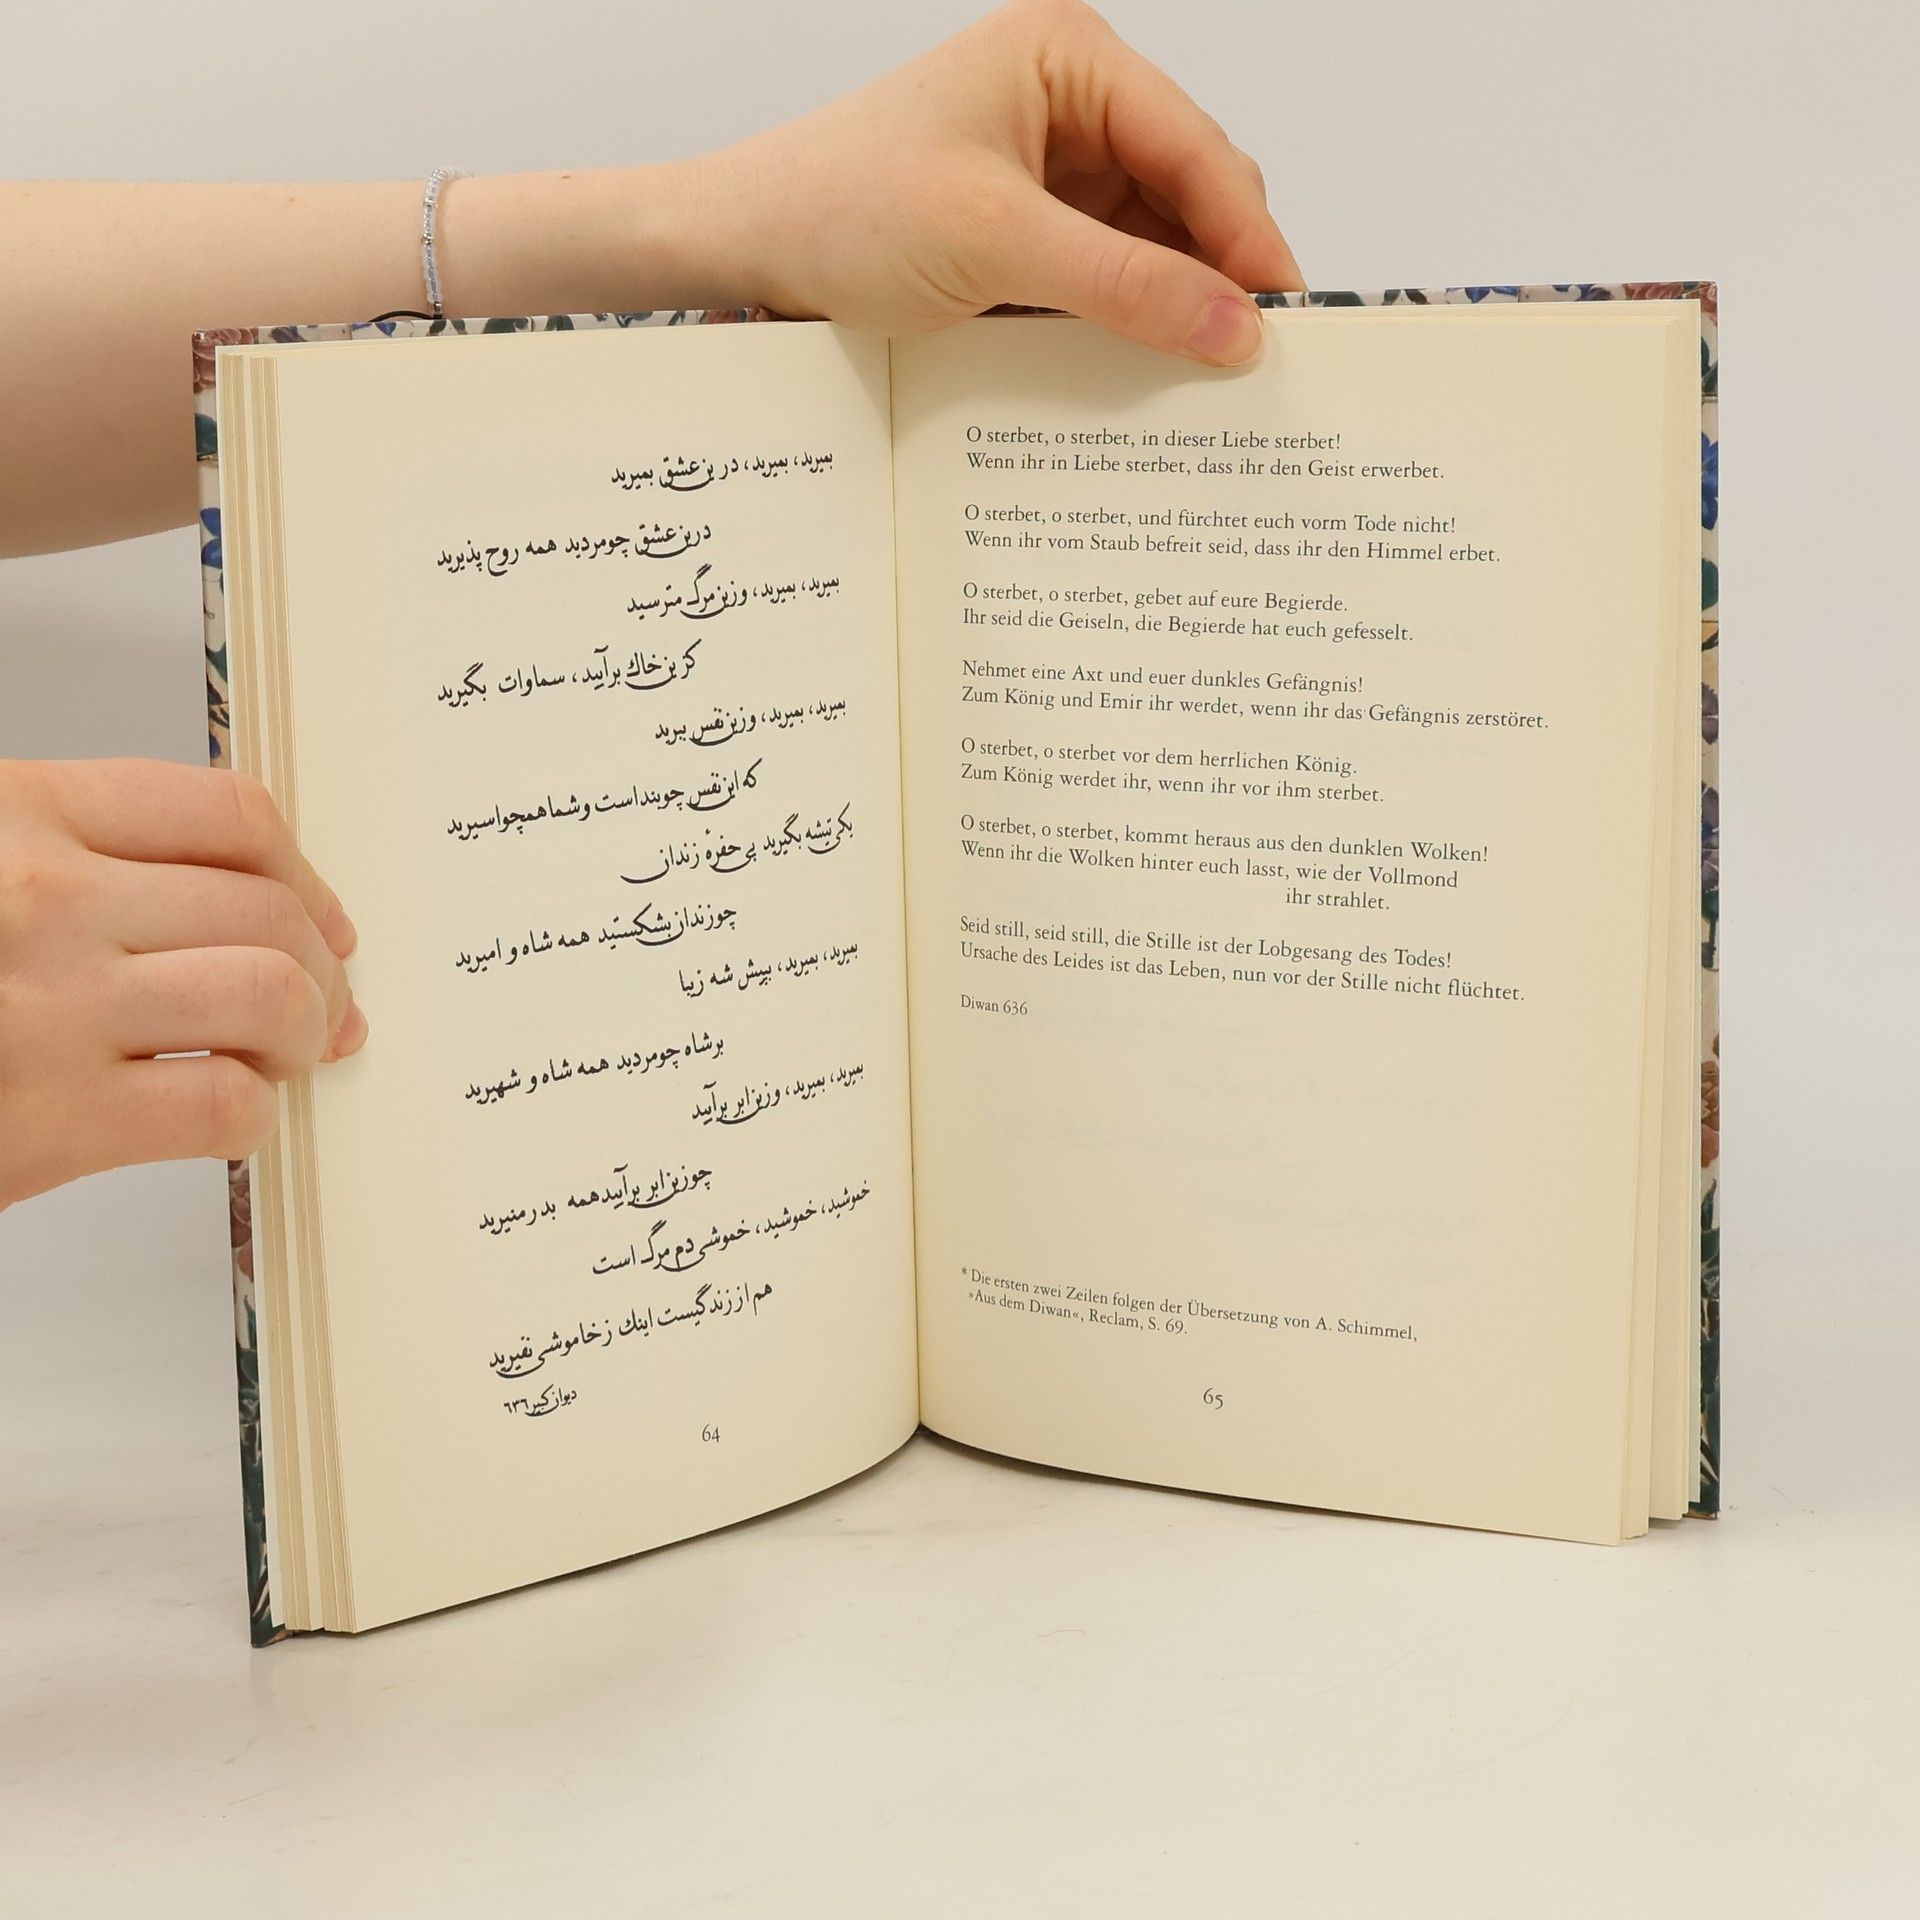 بمیرید، بمیرید، درین عشق بمیرید
درین عشق چو مردید همه روح پذیرید
بمیرید، بمیرید، وزین مرگ مترسید
کزین خاك برآیید، سماوات بگیرید
بمیرید، بمیرید، وزین نفس ببرید
که این نفس چو بند است و شما همچو اسیرید
یکی تیشه بگیرید پی حفرهٔ زندان
چو زندان بشکستید همه شاه و امیرید
بمیرید، بمیرید، بپیش شه زیبا
بر شاه چو مردید همه شاه و شهیرید
بمیرید، بمیرید، وزین ابر برآیید
چو زین ابر برآیید همه بدر منیرید
خموشید، خموشید، خموشی دم مرگ است
هم از زندگیست اینك ز خاموشی نفیرید
دیوان کبیر ٦٣٦
64
O sterbet, o sterbet, in dieser Liebe sterbet!
Wenn ihr in Liebe sterbet, dass ihr den Geist erwerbet.
O sterbet, o sterbet, und fürchtet euch vorm Tode nicht!
Wenn ihr vom Staub befreit seid, dass ihr den Himmel erbet.
O sterbet, o sterbet, gebet auf eure Begierde.
Ihr seid die Geiseln, die Begierde hat euch gefesselt.
Nehmet eine Axt und euer dunkles Gefängnis!
Zum König und Emir ihr werdet, wenn ihr das Gefängnis zerstöret.
O sterbet, o sterbet vor dem herrlichen König.
Zum König werdet ihr, wenn ihr vor ihm sterbet.
O sterbet, o sterbet, kommt heraus aus den dunklen Wolken!
Wenn ihr die Wolken hinter euch lasst, wie der Vollmond
ihr strahlet.
Seid still, seid still, die Stille ist der Lobgesang des Todes!
Ursache des Leides ist das Leben, nun vor der Stille nicht flüchtet.
Diwan 636
* Die ersten zwei Zeilen folgen der Übersetzung von A. Schimmel,
»Aus dem Diwan«, Reclam, S. 69.
65